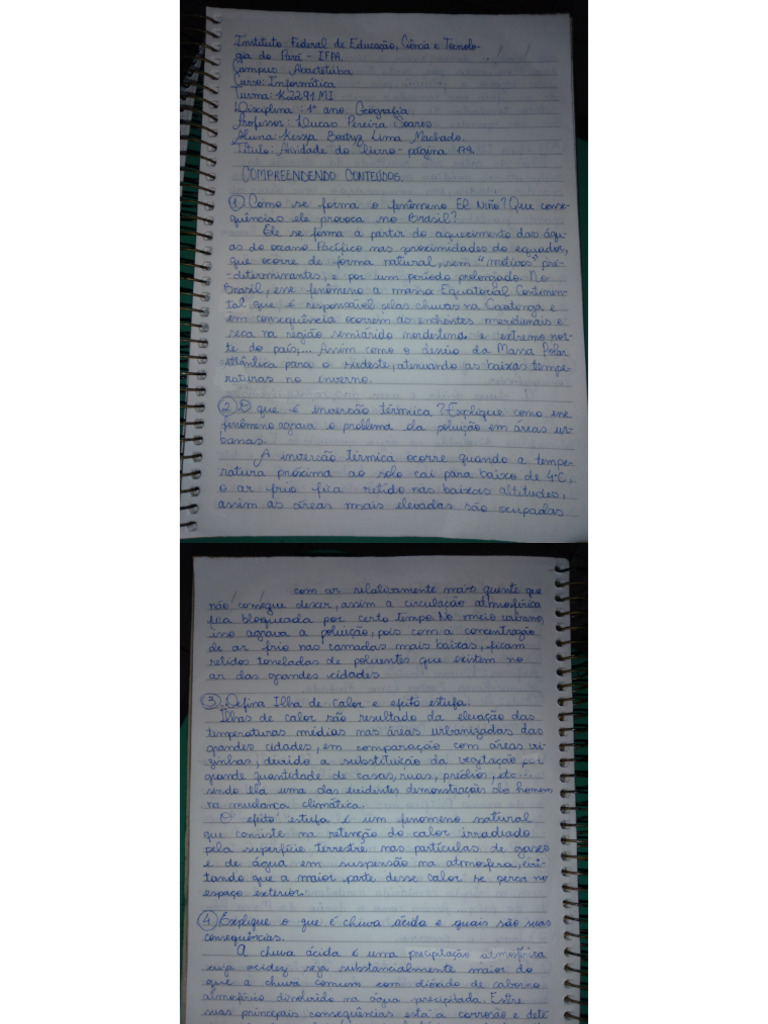 Instituto Federal de Educação, Ciência e Tecnolo-
gia do Pará - IFPA.
Campus Abaetetuba
Curso: Informática
Turma: K2291MI
Disciplina: 1º ano Geografia
Professor: Lucas Pereira Soares
Aluna: Kessya Beatryz Lima Machado.
Título: Atividade do livro - página 179.
COMPREENDENDO CONTEÚDOS.
① Como se forma o fenômeno El Niño? Que conse-
quências ele provoca no Brasil?
Ele se forma a partir do aquecimento das águ-
as do oceano Pacífico nas proximidades do equador,
que ocorre de forma natural, sem "motivos" pré-
-determinantes, e por um período prolongado. No
Brasil, esse fenômeno a massa Equatorial Continen-
tal que é responsável pelas chuvas na Caatinga e
em consequência ocorrem as enchentes meridionais e
seca na região semiárido nordestina e extremo nor-
te do país,... Assim como o desvio da Massa Polar
Atlântica para o Sudeste, atenuando as baixas tempe-
raturas no inverno.
② O que é inversão térmica? Explique como esse
fenômeno agrava o problema da poluição em áreas ur-
banas.
A inversão térmica ocorre quando a tempe-
ratura próxima ao solo cai para baixo de 4°C,
o ar frio fica retido nas baixas altitudes,
assim as áreas mais elevadas são ocupadas
com ar relativamente mais quente que
não consegue descer, assim a circulação atmosférica
fica bloqueada por certo tempo. No meio urbano,
isso agrava a poluição, pois com a concentração
de ar frio nas camadas mais baixas, ficam
retidos toneladas de poluentes que existem no
ar das grandes cidades
③ Defina Ilha de calor e efeito estufa.
Ilhas de calor são resultado da elevação das
temperaturas médias nas áreas urbanizadas das
grandes cidades, em comparação com áreas vi-
zinhas, devido a substituição da vegetação por
grande quantidade de casas, ruas, prédios, etc...
sendo ela uma das evidentes demonstrações do homem
na mudança climática.
O efeito estufa é um fenômeno natural
que consiste na retenção do calor irradiado
pela superfície terrestre nas partículas de gases
e de água em suspensão na atmosfera, evi-
tando que a maior parte desse calor se perca no
espaço exterior.
④ Explique o que é chuva ácida e quais são suas
consequências.
A chuva ácida é uma precipitação atmosférica
cuja acidez seja substancialmente maior do
que a chuva comum com dióxido de carbono
atmosférico dissolvido na água precipitada. Entre
suas principais consequências esta a corrosão e dete